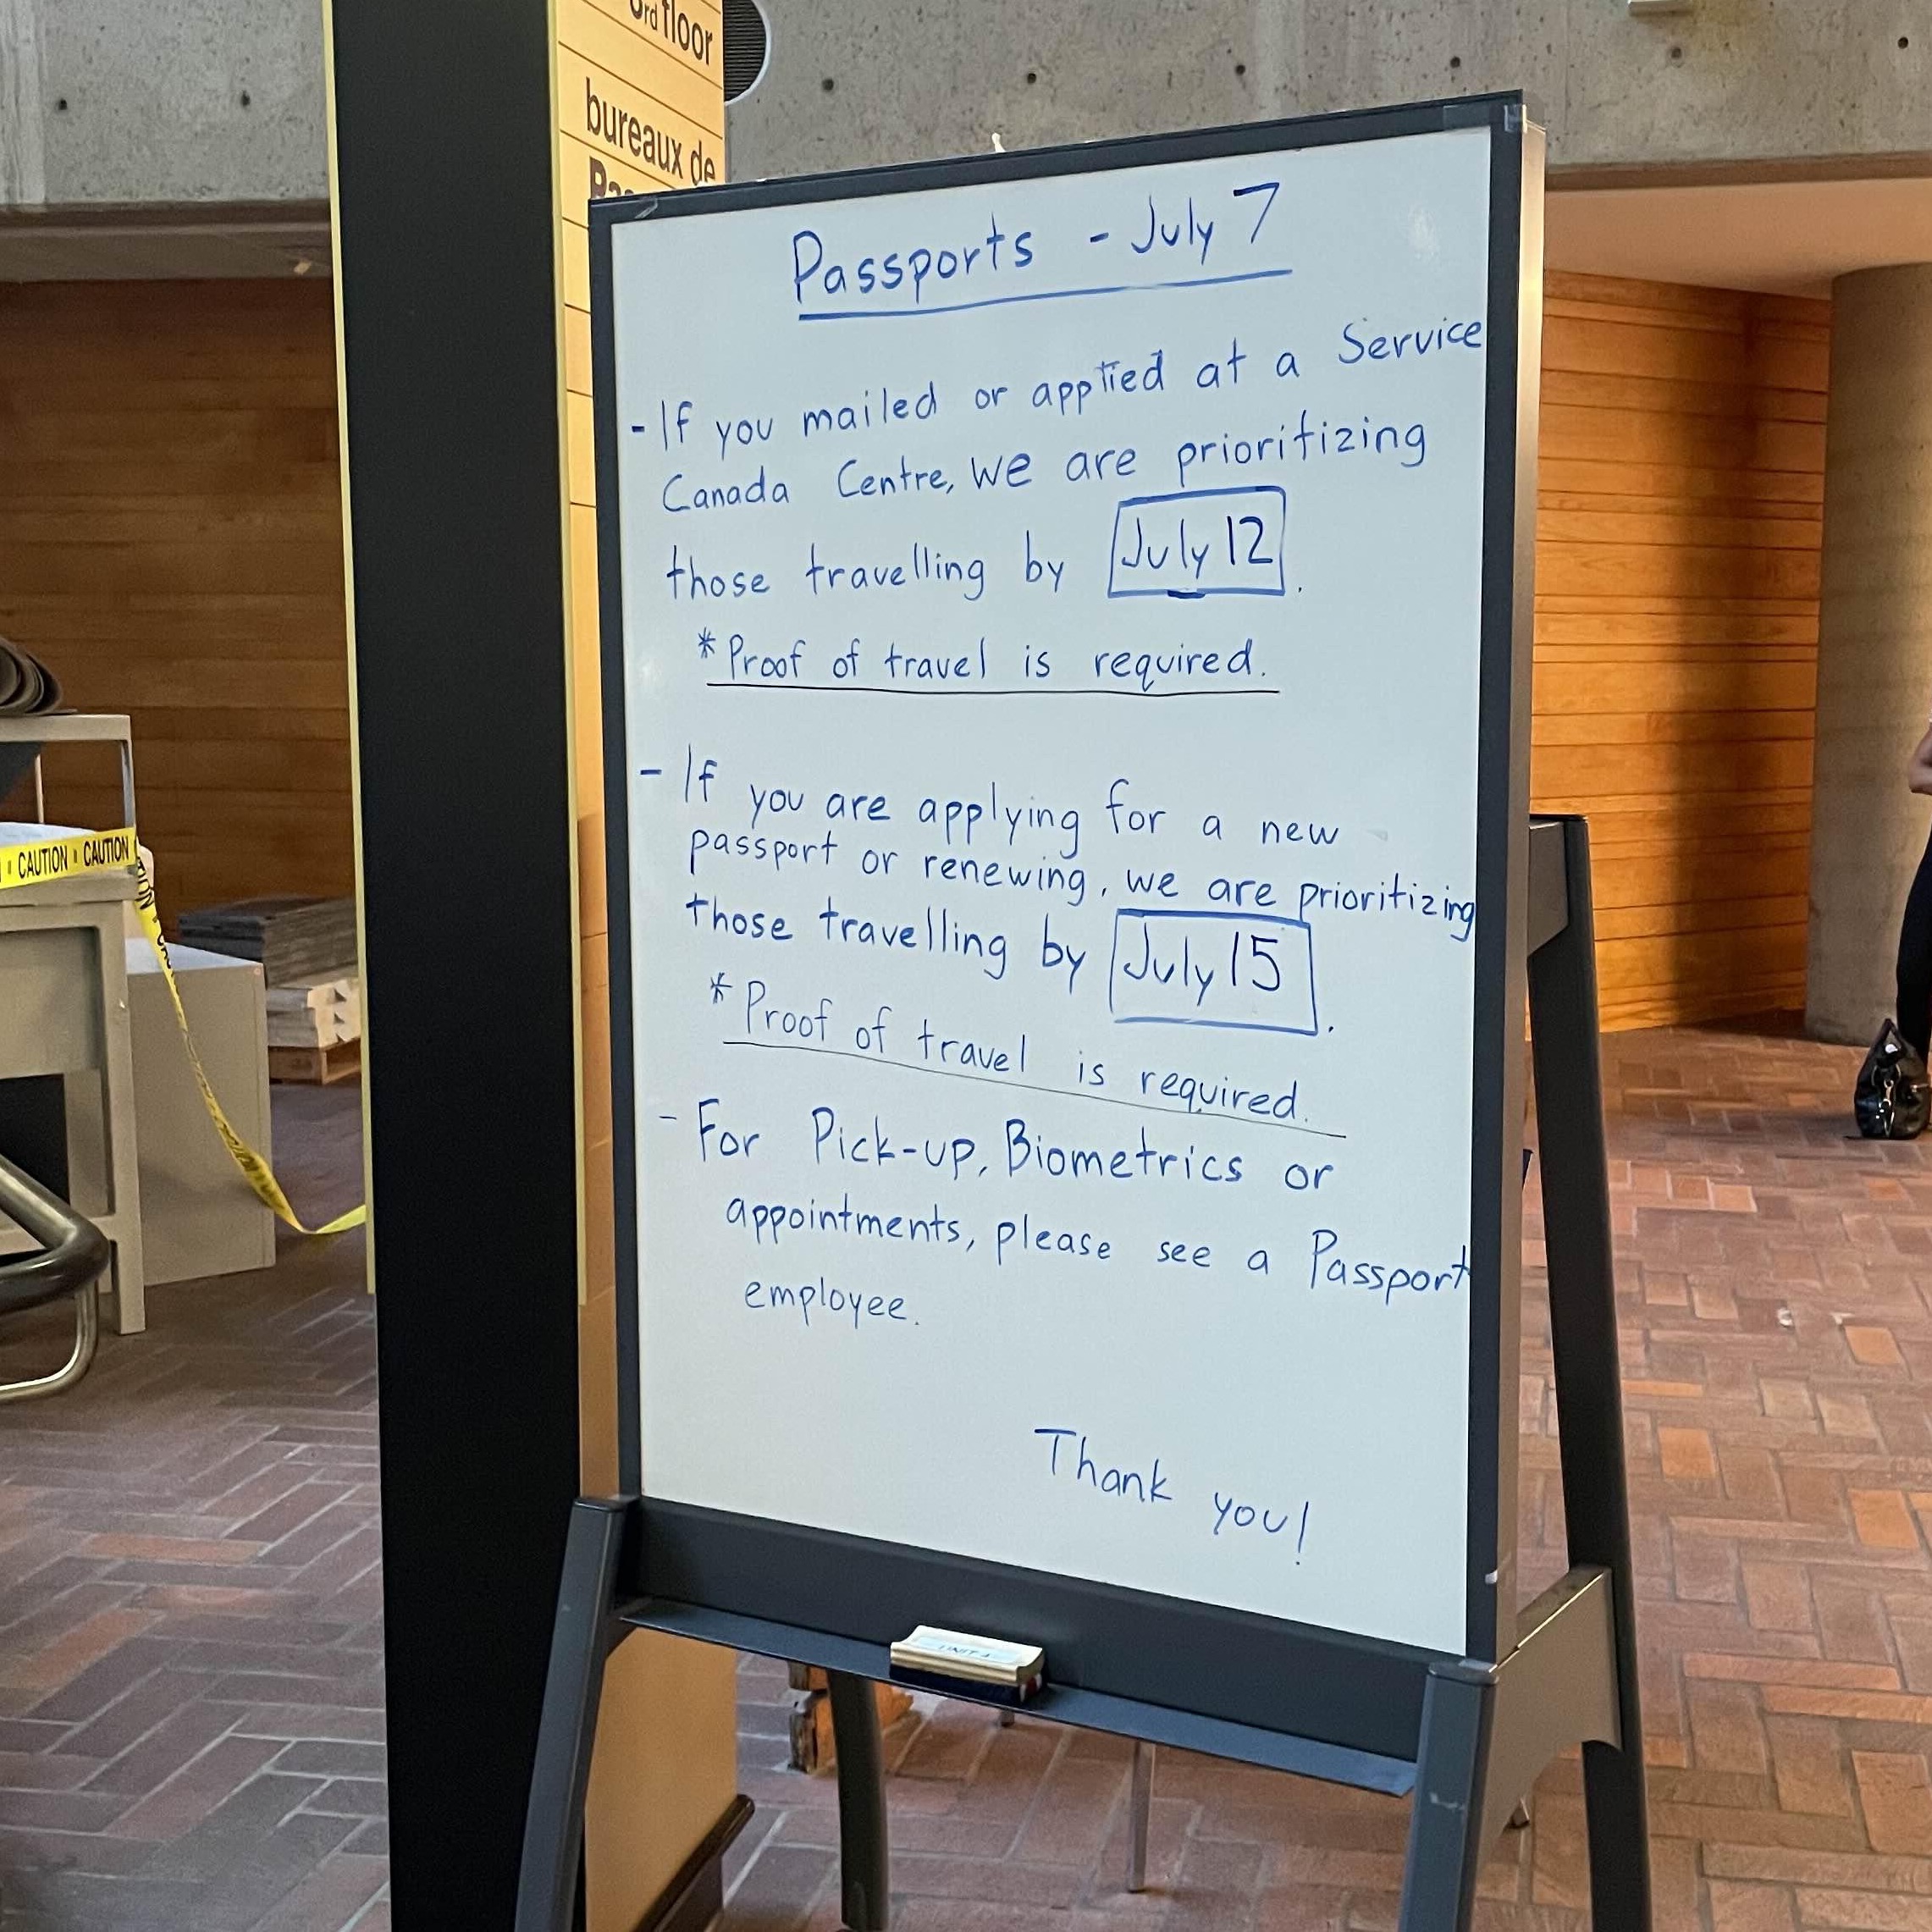 3rd floor
bureaux de
Passports - July 7
- If you mailed or applied at a Service
Canada Centre, we are prioritizing
those travelling by July 12.
* Proof of travel is required.
- If you are applying for a new
passport or renewing, we are prioritizing
those travelling by July 15.
* Proof of travel is required.
- For Pick-up, Biometrics or
appointments, please see a Passport
employee.
Thank you!
CAUTION CAUTION